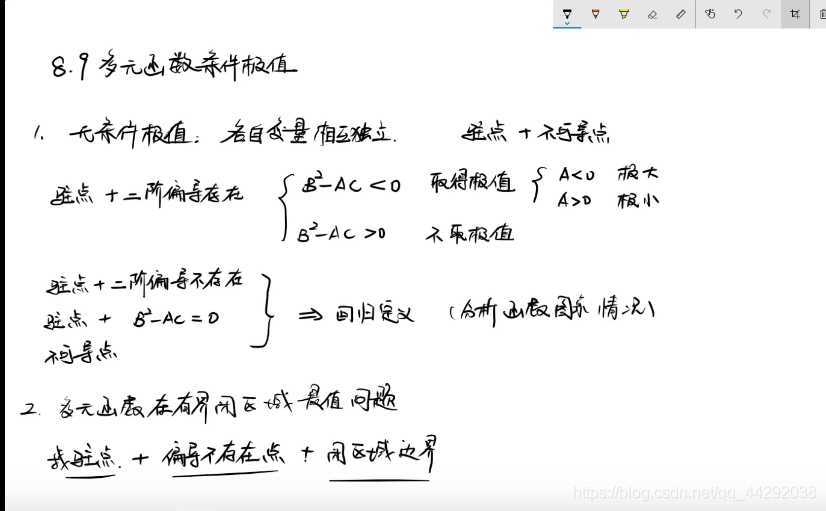 8.9 多元函数条件极值
1. 无条件极值: 各自变量相互独立. 驻点 + 不可导点
驻点 + 二阶偏导存在 { B²-AC<0 取得极值 { A<0 极大
A>0 极小
B²-AC>0 不取极值
驻点 + 二阶偏导不存在
驻点 + B²-AC=0 } ⇒ 回归定义 (分析函数图象情况)
不可导点
2. 多元函数在有界闭区域最值问题
找驻点. + 偏导不存在点 + 闭区域边界
https://blog.csdn.net/qq_44292038